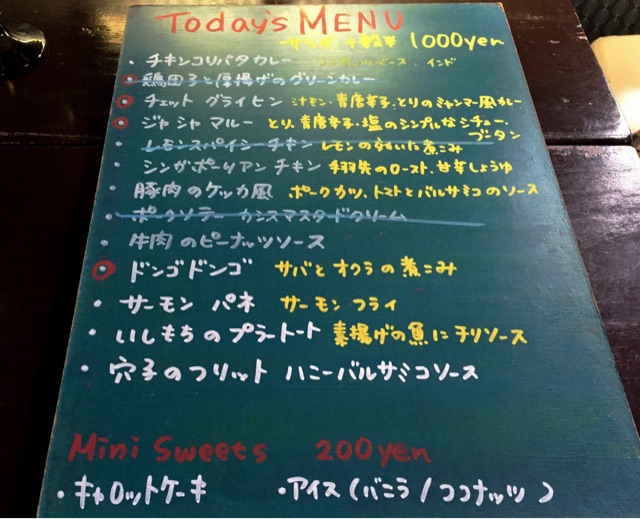 Today's MENU
1000yen
・チキンコリバタカレー ココナッツベース．インド
・鶏団子と厚揚げのグリーンカレー
・チェット グライヒン シナモン・青唐辛子・とりのミャンマー風カレー
・ジャシャ マルー とり、青唐辛子・塩のシンプルなシチュー．
ブータン
・レモンスパイシーチキン レモンの効いた煮こみ
・シンガポーリアンチキン 手羽先のロースト．甘辛しょうゆ
・豚肉のケッカ風 ポークカツ、トマトとバルサミコのソース
・ポークソテー カシスマスタードクリーム
・牛肉のピーナッツソース
・ドンゴドンゴ サバとオクラの煮こみ
・サーモン パネ サーモン フライ
・いしもちのプラートート 素揚げの魚にチリソース
・穴子のフリット ハニーバルサミコソース
Mini Sweets 200yen
・キャロットケーキ ・アイス(バニラ/ココナッツ)